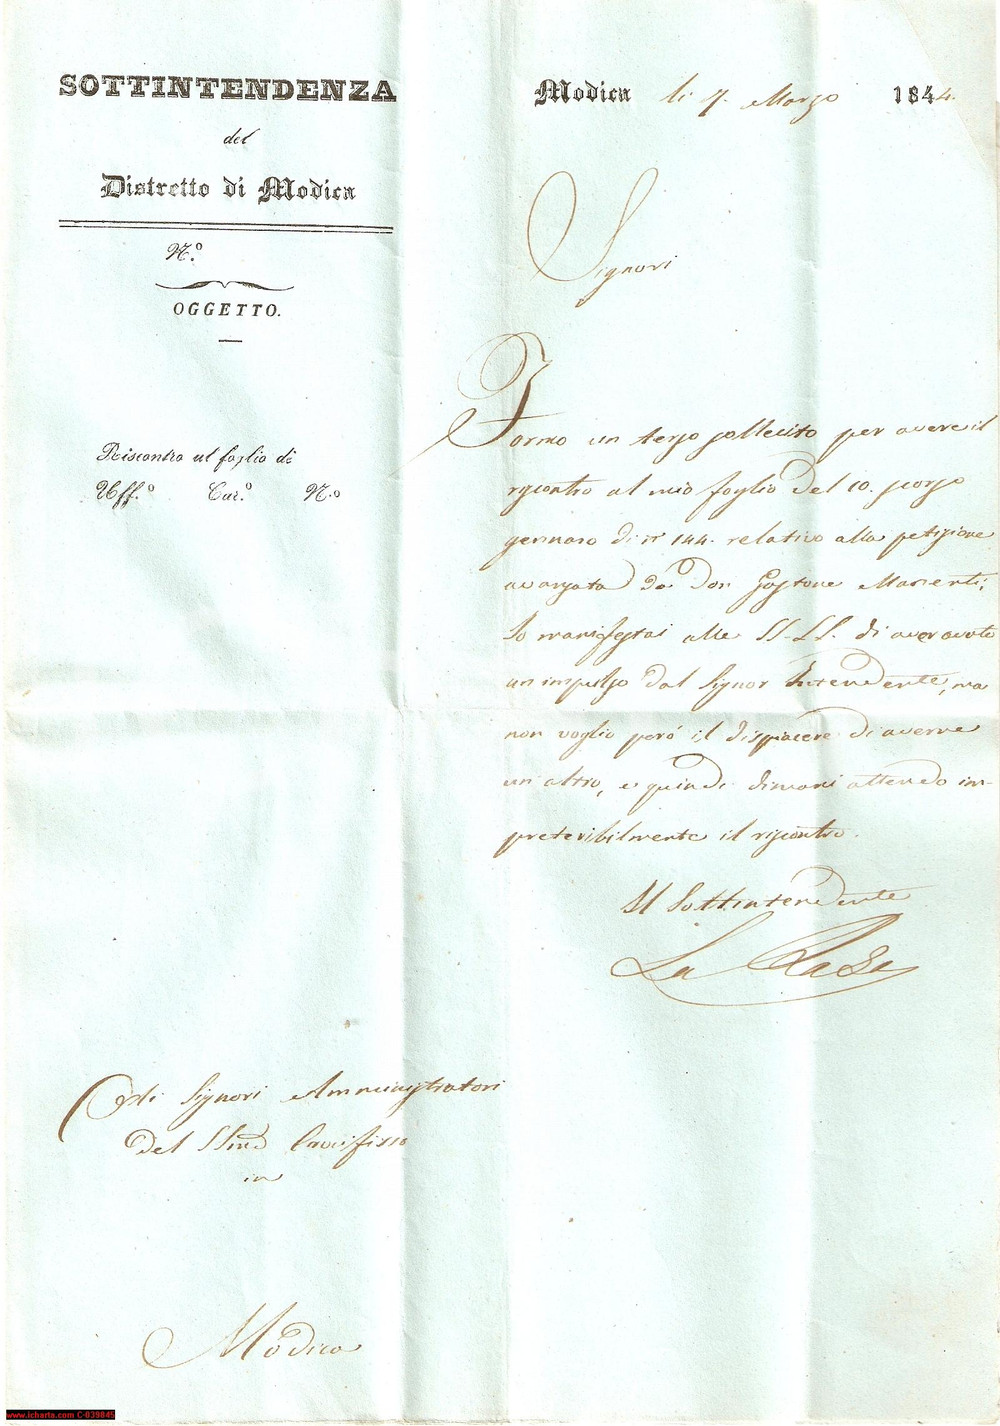 SOTTINTENDENZA
del
Distretto di Modica
N.º
OGGETTO.
Riscontro al foglio di
Uff.º Car.º N.º
Modica li 7. Marzo 1844.
Signori
Formo un terzo sollecito per avere il
riscontro al mio foglio del 10. scorso
gennaro di nº 144. relativo alla petizione
avanzata da Don Gastone Manenti;
Io manifestai alle SS. LL. di aver avuto
un impulso dal Signor Intendente, ma
non voglio però il dispiacere di averne
un altro, e quindi dimani attendo im-
preteribilmente il riscontro.
Il Sottintendente
La
Alli Signori Amministratori
del SSmo Crocifisso
in
Modica
www.icharta.com C-039845